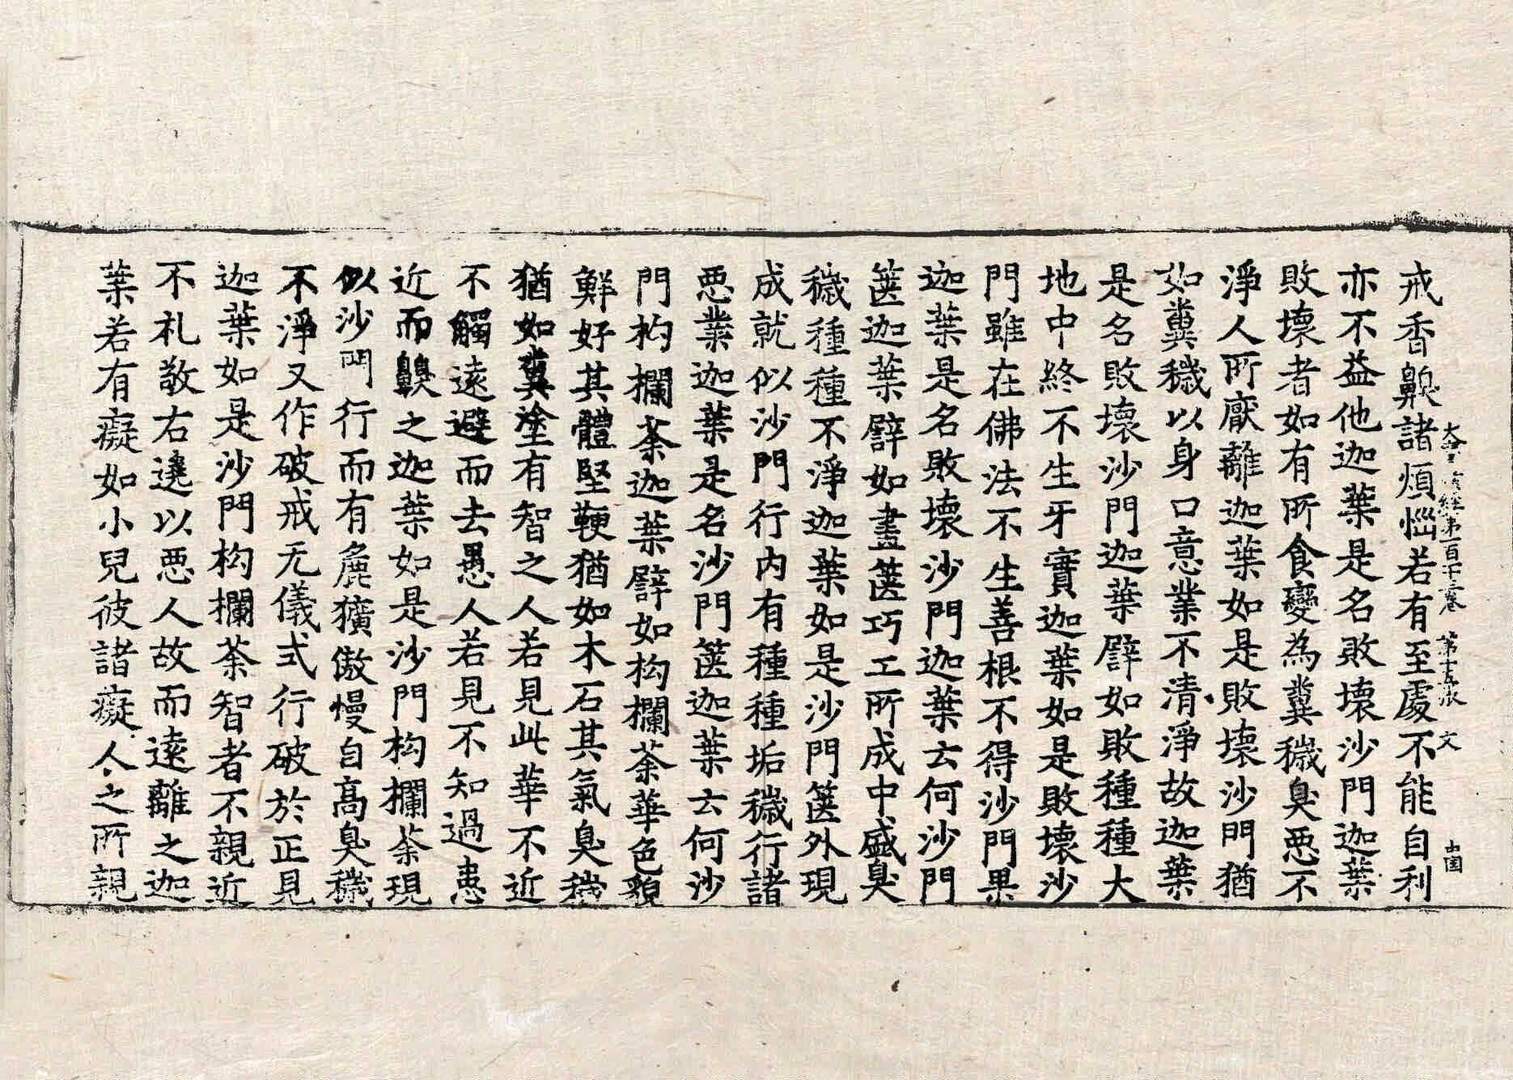 大寶積經第一百十三卷 第十五張 文
戒香齅諸煩惱若有至處不能自利
亦不益他迦葉是名敗壞沙門迦葉
敗壞者如有所食變為糞穢臭惡不
淨人所厭離迦葉如是敗壞沙門猶
如糞穢以身口意業不清淨故迦葉
是名敗壞沙門迦葉譬如敗種種大
地中終不生牙實迦葉如是敗壞沙
門雖在佛法不生善根不得沙門果
迦葉是名敗壞沙門迦葉云何沙門
篋迦葉譬如畫篋巧工所成中盛臭
穢種種不淨迦葉如是沙門篋外現
成就似沙門行內有種種垢穢行諸
惡業迦葉是名沙門篋迦葉云何沙
門构欄荼迦葉譬如构欄荼華色貌
鮮好其體堅鞕猶如木石其氣臭穢
猶如糞塗有智之人若見此華不近
不觸遠避而去愚人若見不知過患
近而齅之迦葉如是沙門构欄荼現
似沙門行而有麁獷傲慢自高臭穢
不淨又作破戒无儀式行破於正見
迦葉如是沙門构欄荼智者不親近
不礼敬右遶以惡人故而遠離之迦
葉若有癡如小兒彼諸癡人之所親